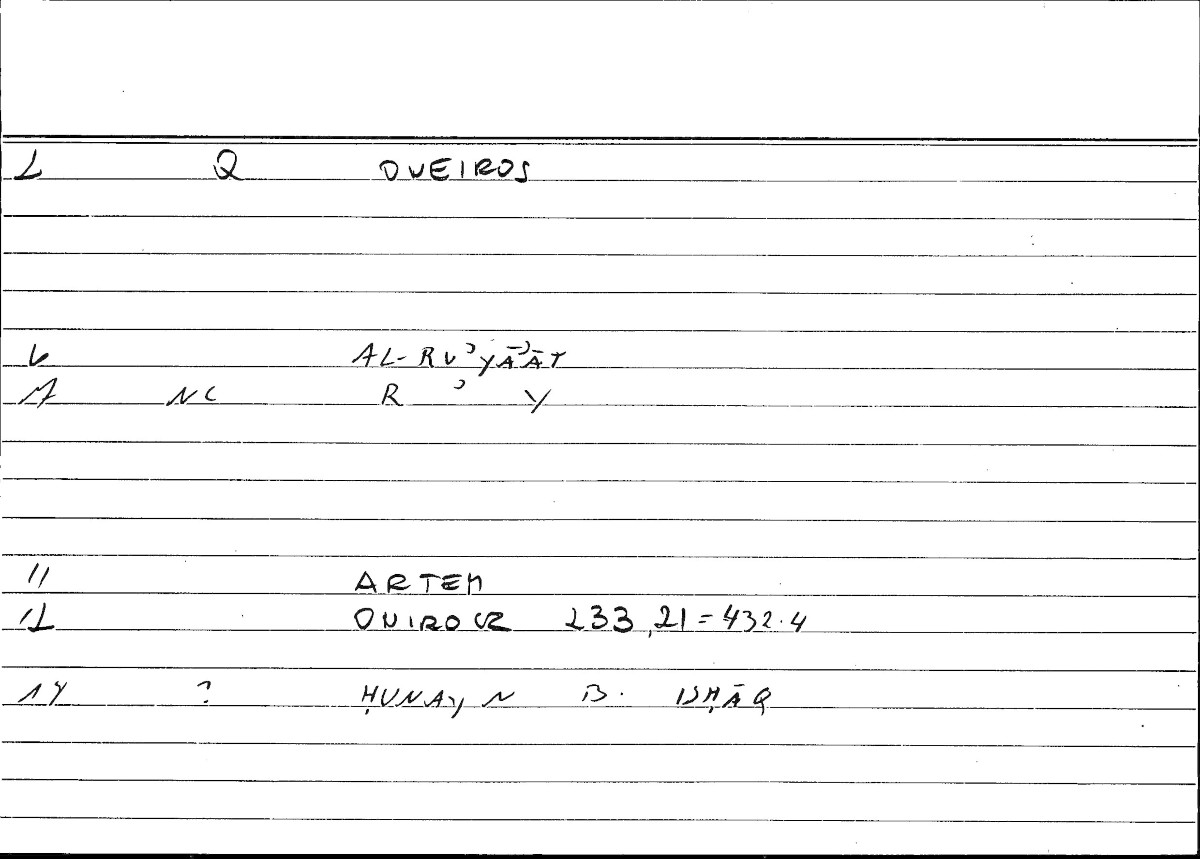 2 Q OVEIROS
6 AL-RUʾYĀʾĀT
7 NC R ʾ Y
11 ARTEM
12 ONIROCR 233,21=432.4
14 ? ḤUNAYN B. ISḤĀQ